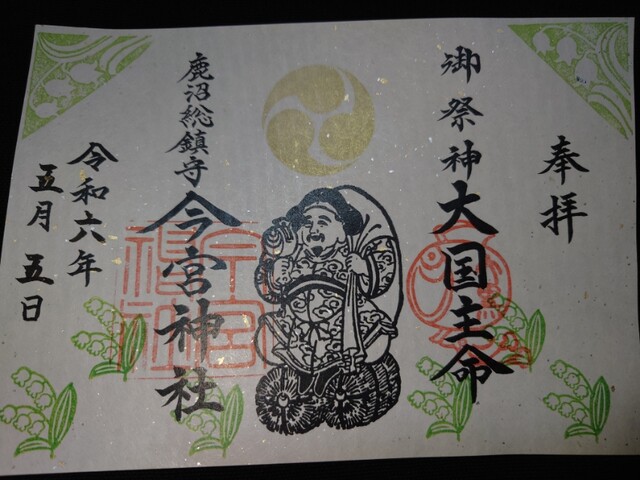 奉拝
御祭神大国主命
鹿沼総鎮守
今宮神社
令和六年
五月五日